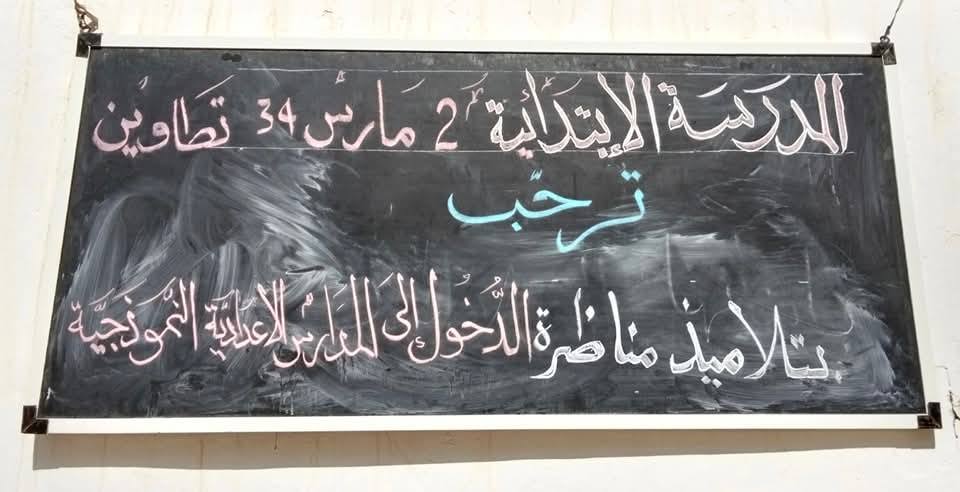 المدرسة الإبتدائية 2 مارس 34 تطاوين
ترحّب
بتلاميذ مناظرة الدُّخول إلى المدارس الاعداديّة النّموذجيّة